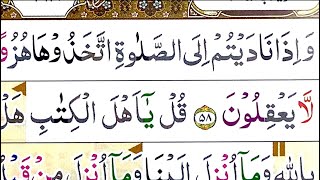 وَاِذَا نَادَيْتُمْ اِلَى الصَّلٰوةِ اتَّخَذُوْهَا هُزُوًا
لَّا يَعْقِلُوْنَ ﴿٥٨﴾ قُلْ يٰٓاَهْلَ الْكِتٰبِ هَلْ
بِاللّٰهِ وَمَآ اُنْزِلَ اِلَيْنَا وَمَآ اُنْزِلَ مِنْ قَبْلُ